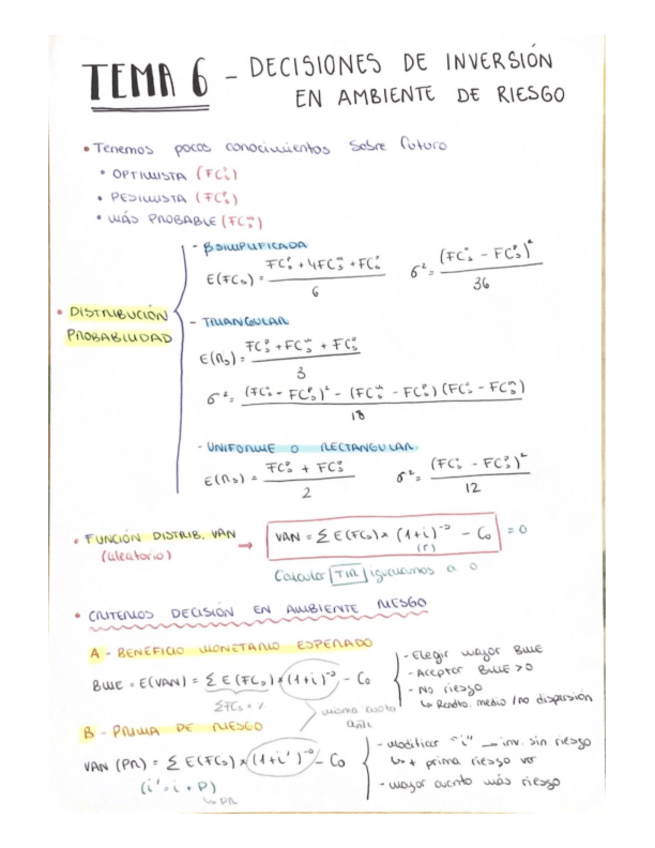 TEMA 6 - DECISIONES DE INVERSIÓN
EN AMBIENTE DE RIESGO
• Tenemos pocos conocimientos sobre futuro
• OPTIMISTA (FCₛᵒ)
• PESIMISTA (FCₛᵖ)
• MÁS PROBABLE (FCₛᵐ)
• DISTRIBUCIÓN
PROBABILIDAD
- β SIMPLIFICADA
E(FCₛ) = (FCₛᵖ + 4FCₛᵐ + FCₛᵒ) / 6    σ² = (FCₛᵒ - FCₛᵖ)² / 36
- TRIANGULAR
E(Rₛ) = (FCₛᵖ + FCₛᵐ + FCₛᵒ) / 3
σ² = ((FCₛᵒ - FCₛᵖ)² - (FCₛᵐ - FCₛᵖ)(FCₛᵒ - FCₛᵐ)) / 18
- UNIFORME O RECTANGULAR
E(Rₛ) = (FCₛᵖ + FCₛᵒ) / 2    σ² = (FCₛᵒ - FCₛᵖ)² / 12
• FUNCIÓN DISTRIB. VAN
(aleatorio) →
VAN = Σ E(FCₛ) × (1+i)⁻ˢ - C₀ = 0
(r)
Calcular TIR igualamos a 0
• CRITERIOS DECISIÓN EN AMBIENTE RIESGO
A - BENEFICIO MONETARIO ESPERADO
BME = E(VAN) = Σ E(FCₛ) × (1+i)⁻ˢ - C₀
- Elegir mayor BME
- Aceptar BME > 0
- No riesgo
↳ Rendto. medio / no dispersión
B - PRIMA DE RIESGO
VAN (PR) = Σ E(FCₛ) × (1+i')⁻ˢ - C₀
(i' = i + P)
↳ PR
- Modificar "i" → inv. sin riesgo
↳ + prima riesgo
- mayor cuanto más riesgo